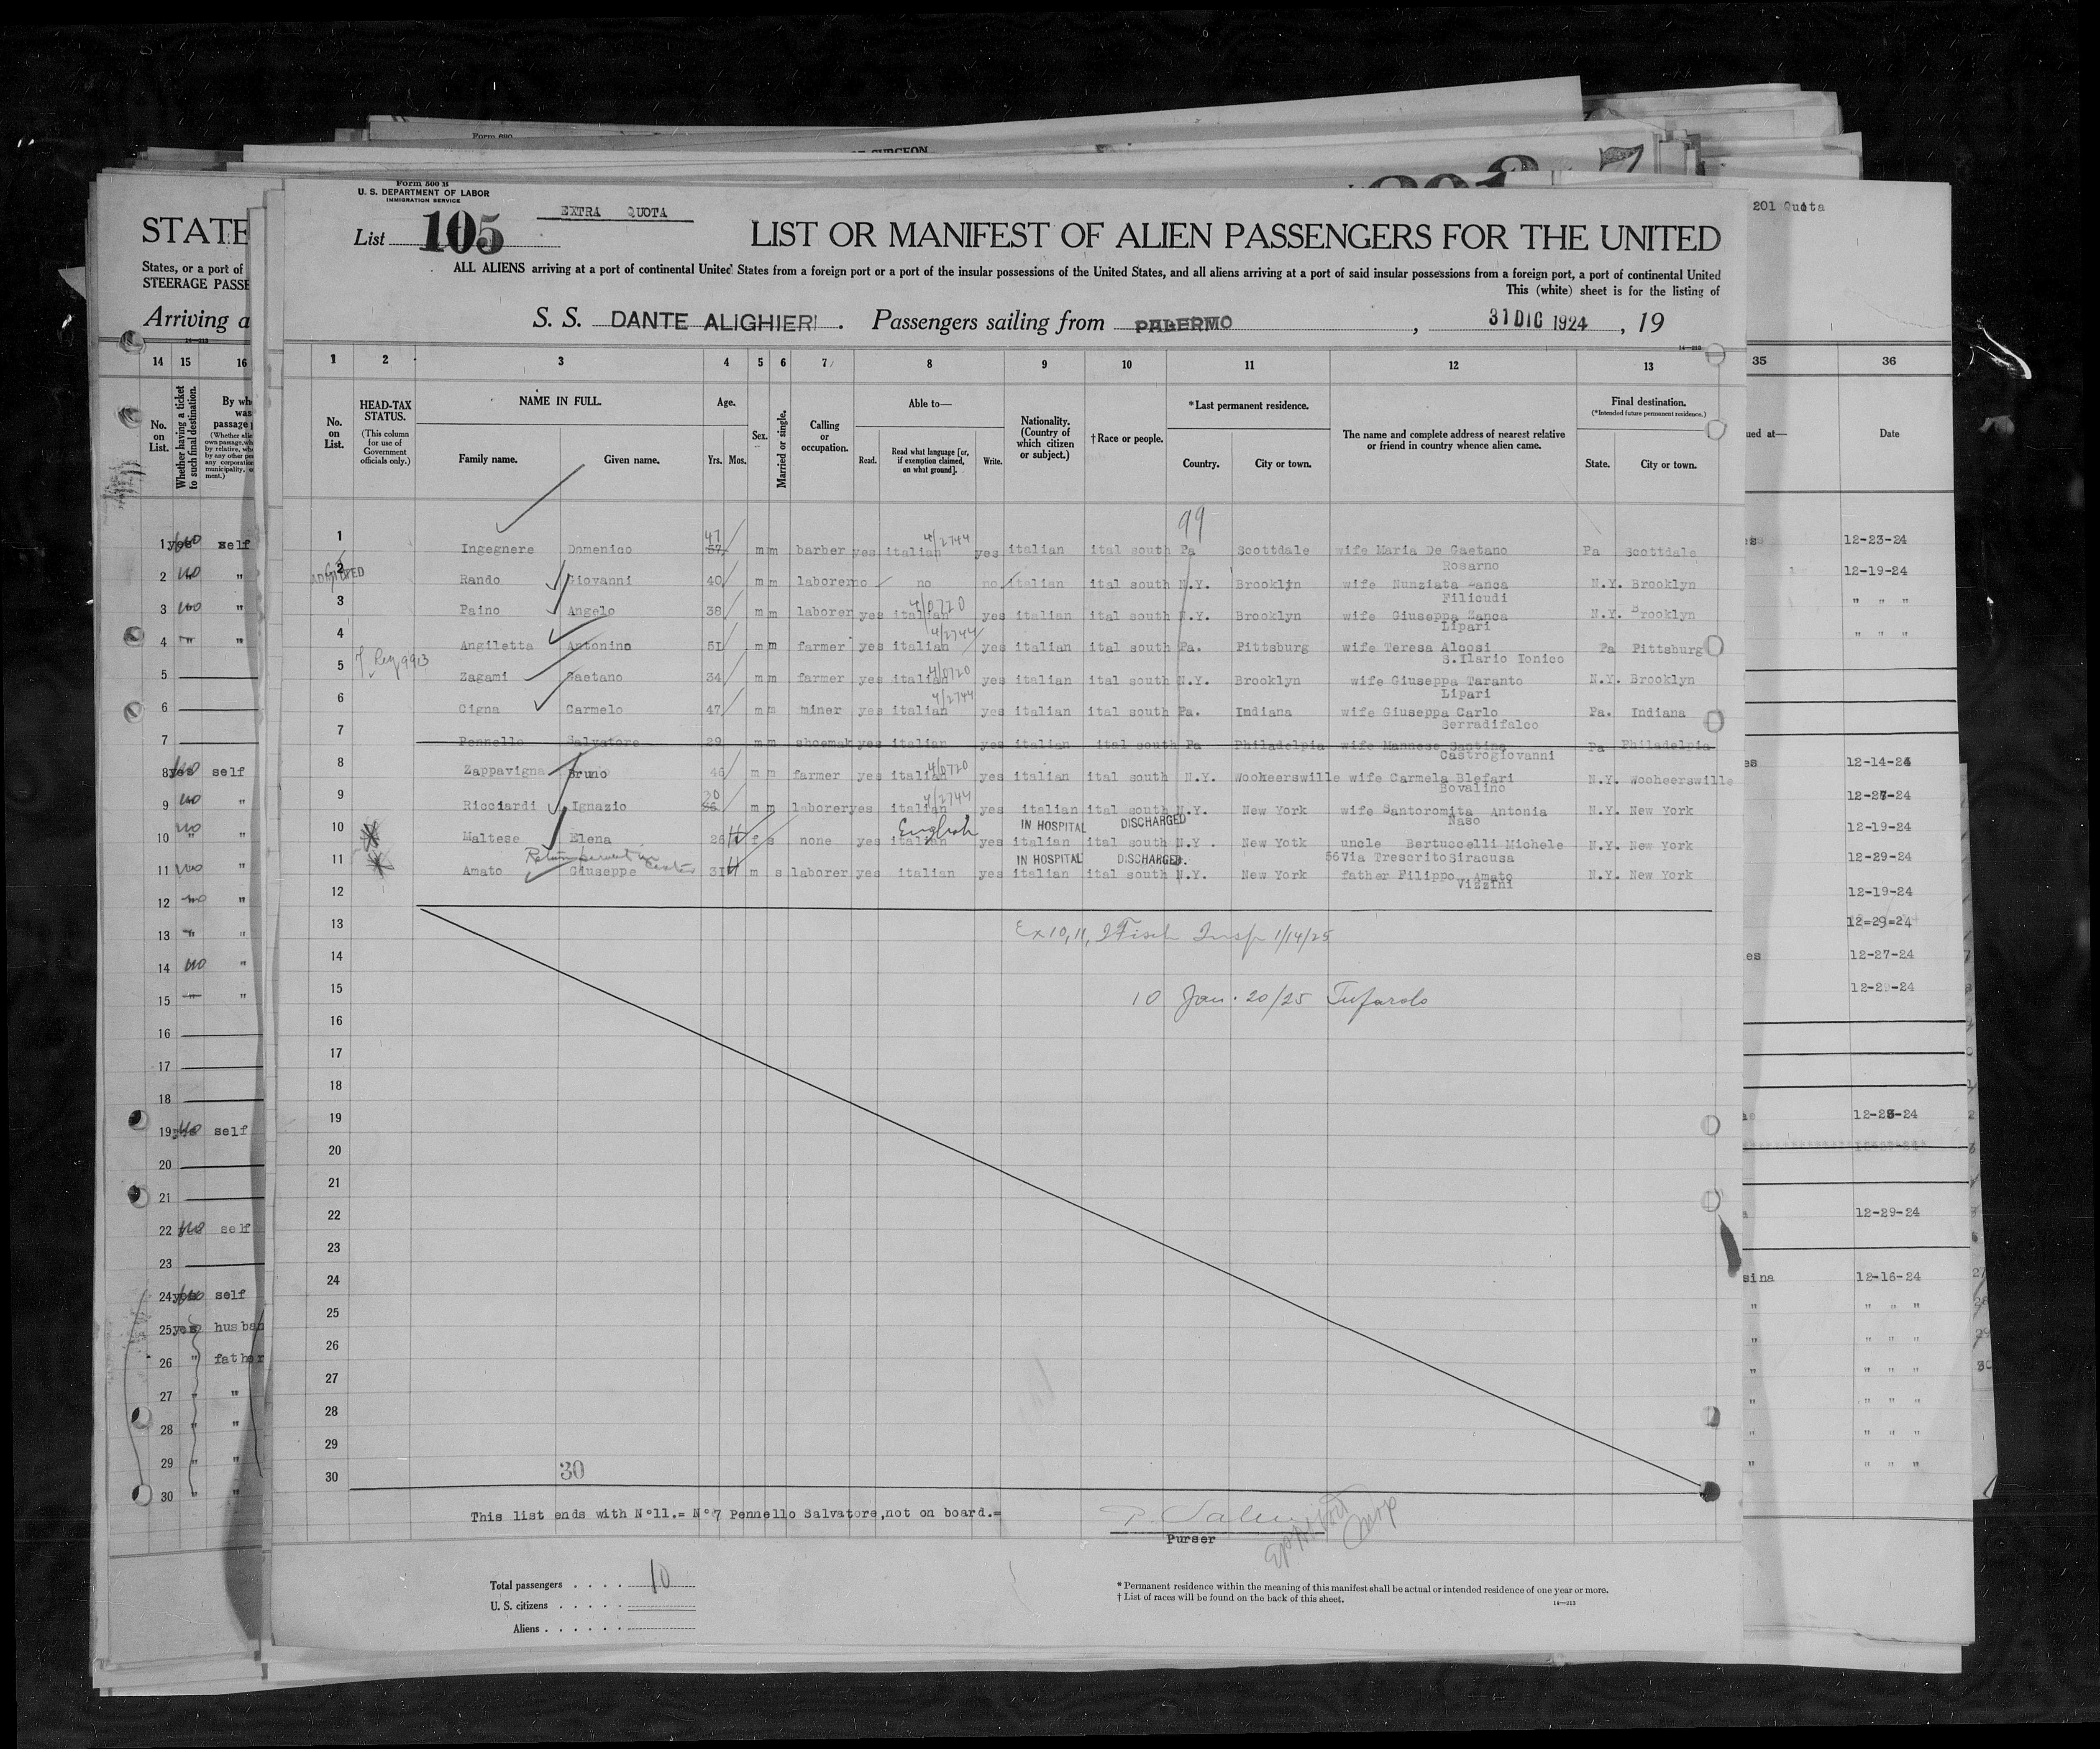 Form 500 B
U. S. DEPARTMENT OF LABOR
IMMIGRATION SERVICE
EXTRA QUOTA
List 105
LIST OR MANIFEST OF ALIEN PASSENGERS FOR THE UNITED
ALL ALIENS arriving at a port of continental United States from a foreign port or a port of the insular possessions of the United States, and all aliens arriving at a port of said insular possessions from a foreign port, a port of continental United
This (white) sheet is for the listing of
S. S. DANTE ALIGHIERI . Passengers sailing from PALERMO , 31 DIC 1924 , 19
1 2 3 4 5 6 7 8 9 10 11 12 13
No. on List.
HEAD-TAX STATUS.
(This column for use of Government officials only.)
NAME IN FULL.
Family name. Given name.
Age.
Yrs. Mos.
Sex.
Married or single.
Calling or occupation.
Able to—
Read. Read what language [or, if exemption claimed, on what ground]. Write.
Nationality. (Country of which citizen or subject.)
† Race or people.
* Last permanent residence.
Country. City or town.
The name and complete address of nearest relative or friend in country whence alien came.
Final destination.
(* Intended future permanent residence.)
State. City or town.
99
1 Ingegnere Domenico 47 57 m m barber yes italian 4/2744 yes italian ital south Pa Scottdale wife Maria De Gaetano Rosarno Pa Scottdale
2 ADMITTED Rando Giovanni 40 m m laborer no no no italian ital south N.Y. Brooklyn wife Nunziata Zanca Filicudi N.Y. Brooklyn
3 Paino Angelo 38 m m laborer yes italian 4/0720 yes italian ital south N.Y. Brooklyn wife Giuseppa Zanca Lipari N.Y. Brooklyn
4 Angiletta Antonino 51 m m farmer yes italian 4/2744 yes italian ital south Pa. Pittsburg wife Teresa Alcosi S.Ilario Ionico Pa Pittsburg
5 Zagami Gaetano 34 m m farmer yes italian 4/0720 yes italian ital south N.Y. Brooklyn wife Giuseppa Taranto Lipari N.Y. Brooklyn
6 Cigna Carmelo 47 m m miner yes italian 4/2744 yes italian ital south Pa. Indiana wife Giuseppa Carlo Serradifalco Pa. Indiana
7 Pennello Salvatore 29 m m shoemak yes italian yes italian ital south Pa Philadelpia wife Mannese Santina Castrogiovanni Pa Philadelpia
8 Zappavigna Bruno 46 m m farmer yes italian 4/0720 yes italian ital south N.Y. Wooheerswille wife Carmela Blefari Bovalino N.Y. Wooheerswille
9 Ricciardi Ignazio 30 m m laborer yes italian 4/2744 yes italian ital south N.Y. New York wife Santoromita Antonia Naso N.Y. New York
10 Maltese Elena 26 f s none yes English italian yes italian IN HOSPITAL DISCHARGED ital south N.Y. New Yotk uncle Bertuccelli Michele 56Via Trescrito Siracusa N.Y. New York
11 Amato Giuseppe 31 m s laborer yes italian yes italian IN HOSPITAL DISCHARGED. ital south N.Y. New York father Filippo Amato Vizzini N.Y. New York
12
13 Ex 10, 11, Insp 1/14/25
14
15 10 Jan. 20/25 Tufarolo
16
17
18
19
20
21
22
23
24
25
26
27
28
29
30
30
This list ends with N°11.= N°7 Pennello Salvatore,not on board.=
Purser
Total passengers . . . . 10
U. S. citizens . . . . .
Aliens . . . . . .
* Permanent residence within the meaning of this manifest shall be actual or intended residence of one year or more.
† List of races will be found on the back of this sheet.
14—213
STATE
States, or a port of
STEERAGE PASSE
Arriving a
14 15 16
No. on List.
Whether having a ticket to such final destination.
1 yes no self
2 no "
3 no "
4 " "
5
6
7
8 yes no self
9 no "
10 no "
11 no "
12 no "
13 " "
14 no "
15 "
16
17
18
19 no self
20
21
22 no self
23
24 yes no self
25 yes husban
26 " father
27 " "
28 " "
29 " "
30 " "
201 Quota
35 36
ued at— Date
12-23-24
12-19-24
" " "
" " "
es 12-14-24
12-27-24
12-19-24
12-29-24
12-19-24
12=29=24
es 12-27-24
12-29-24
12-28-24
12-29-24
sina 12-16-24
" " " "
" " " "
" " " "
" " " "
" " " "
" " " "